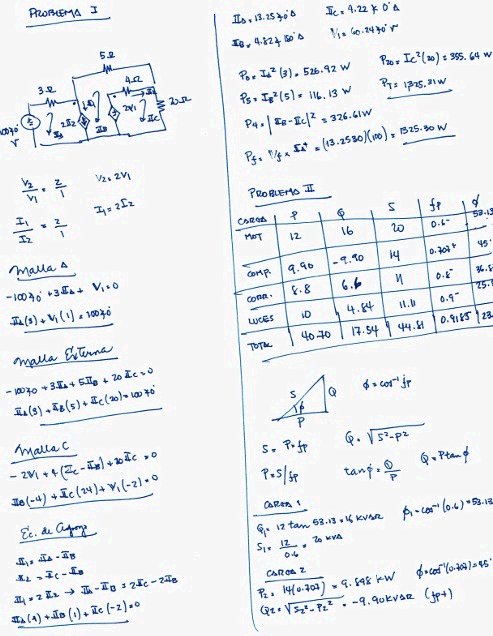 PROBLEMA I
5Ω
3Ω
4Ω
20Ω
2I2
2V1
IA
IB
IC
100∠0°
V
V2/V1 = 2/1   V2 = 2V1
I1/I2 = 2/1   I1 = 2I2
Malla A
-100∠0° + 3IA + V1 = 0
IA(3) + V1(1) = 100∠0°
Malla Externa
-100∠0 + 3IA + 5IB + 20IC = 0
IA(3) + IB(5) + IC(20) = 100∠0°
Malla C
-2V1 + 4(IC - IB) + 20IC = 0
IB(-4) + IC(24) + V1(-2) = 0
I1 = IA - IB
I2 = IC - IB
I1 = 2I2 → IA - IB = 2IC - 2IB
IA(1) + IB(1) + IC(-2) = 0
IA = 13.25∠0° A   IC = 4.22∠0° A
IB = 4.82∠180° A   V1 = 60.24∠0° V
P3 = IA²(3) = 526.92 W   P20 = IC²(20) = 355.64 W
P5 = IB²(5) = 116.13 W   PT = 1325.31 W
P4 = |IB - IC|² = 326.61 W
Pf = Vf x IA* = (13.2530)(100) = 1325.30 W
PROBLEMA II
CARGA P Q S fp ϕ
MOT 12 16 20 0.6- 53.13
COMP. 9.90 -9.90 14 0.707+ 45°
CORR. 8.8 6.6 11 0.8- 36.8
LUCES 10 4.84 11.11 0.9- 25.
TOTAL 40.70 17.54 44.31 0.9185 23.
S
Q
ϕ
P
ϕ = cos⁻¹ fp
S = P * fp   Q = √S²-P²
P = S/fp   tan ϕ = Q/P   Q = P tan ϕ
CARGA 1
Q1 = 12 tan 53.13 = 16 KVAR   ϕ1 = cos⁻¹(0.6) = 53.13
S1 = 12/0.6 = 20 KVA
CARGA 2
P2 = 14(0.707) = 9.898 KW   ϕ = cos⁻¹(0.707) = 45°
Q2 = √S2²-P2² = -9.90 KVAR (fp+)